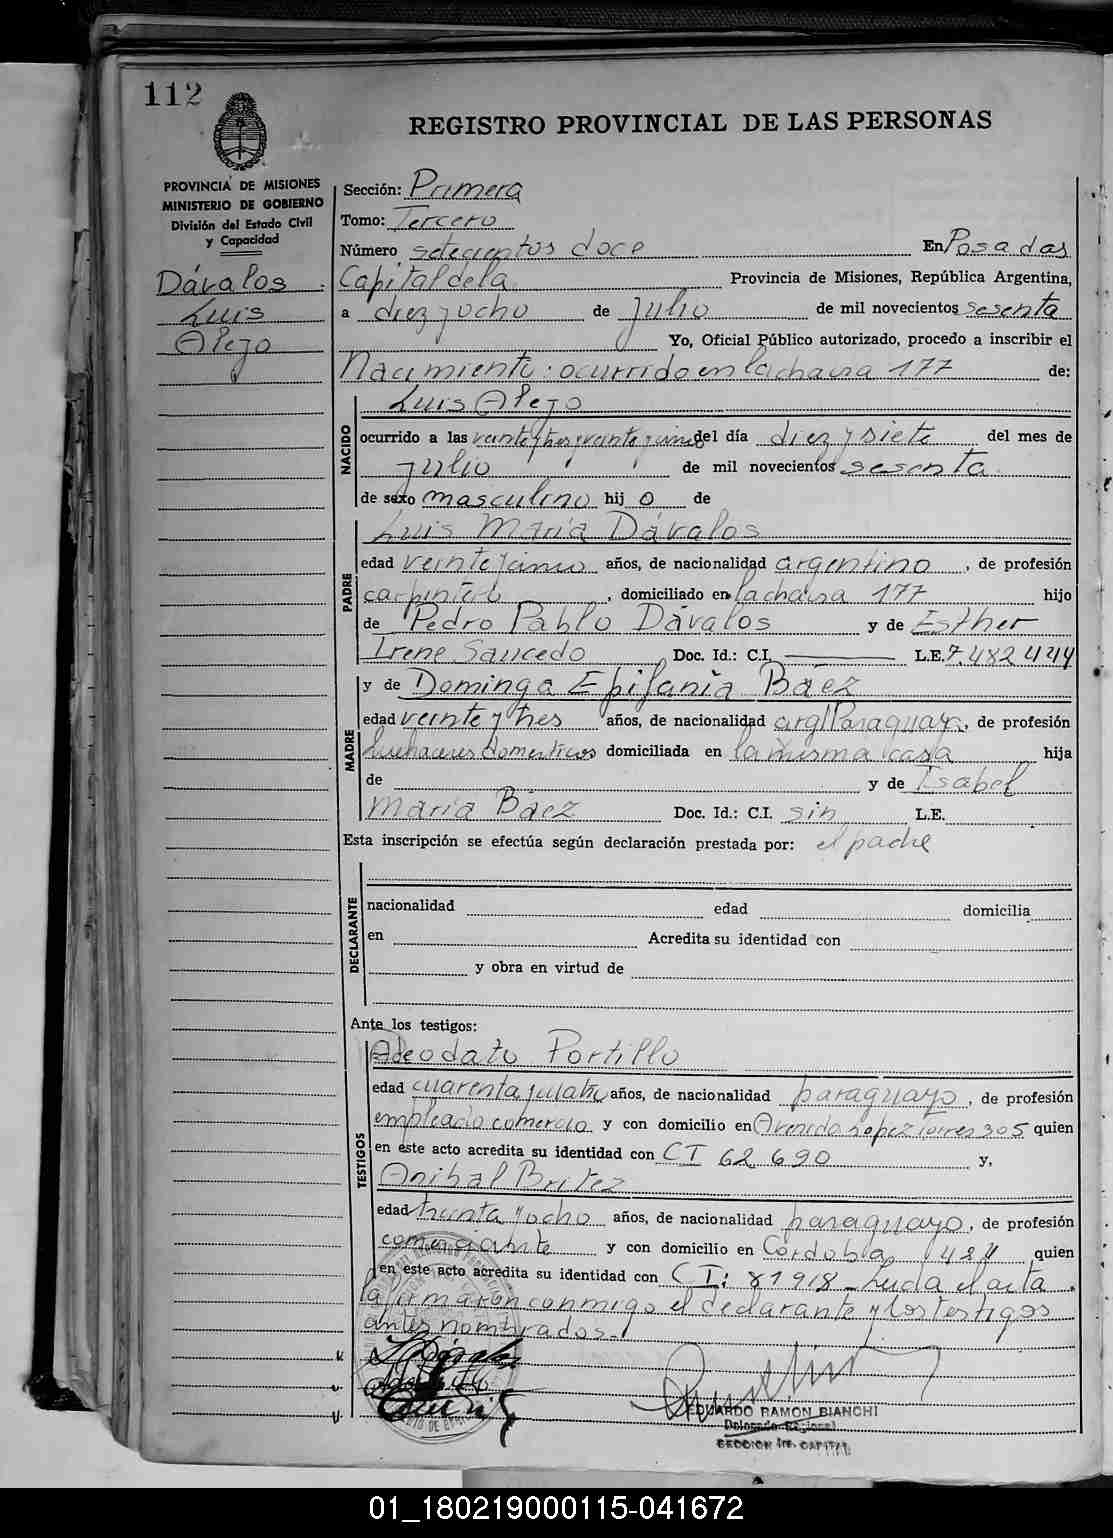 112
REGISTRO PROVINCIAL DE LAS PERSONAS
PROVINCIA DE MISIONES
MINISTERIO DE GOBIERNO
División del Estado Civil
y Capacidad
Dávalos
Luis
Alejo
Sección: Primera
Tomo: Tercero
Número setecientos doce En Posadas
Capital de la Provincia de Misiones, República Argentina,
a diez y ocho de Julio de mil novecientos sesenta
Yo, Oficial Público autorizado, procedo a inscribir el
Nacimiento: ocurrido en la chacra 177 de:
NACIDO
Luis Alejo
ocurrido a las veinte y tres y veinte y cinco del día diez y siete del mes de
Julio de mil novecientos sesenta
de sexo masculino hij o de
PADRE
Luis María Dávalos
edad veinte y cinco años, de nacionalidad argentino, de profesión
carpintero, domiciliado en la chacra 177 hijo
de Pedro Pablo Dávalos y de Esther
Irene Saucedo Doc. Id.: C.I. L.E. 7.482444
MADRE
y de Dominga Epifania Báez
edad veinte y tres años, de nacionalidad arg/Paraguaya, de profesión
quehaceres domesticos domiciliada en la misma casa hija
de y de Isabel
María Báez Doc. Id.: C.I. sin L.E.
Esta inscripción se efectúa según declaración prestada por: el padre
DECLARANTE
nacionalidad edad domicilia
en Acredita su identidad con
y obra en virtud de
Ante los testigos:
TESTIGOS
Adeodato Portillo
edad cuarenta y cuatro años, de nacionalidad paraguayo, de profesión
empleado comercio y con domicilio en Avenida Lopez Torres 305 quien
en este acto acredita su identidad con CI 62.690 y,
Anibal Britez
edad treinta y ocho años, de nacionalidad paraguayo, de profesión
comerciante y con domicilio en Córdoba 484 quien
en este acto acredita su identidad con CI: 81918_Leida el acta
la firmaron conmigo el declarante y los testigos
antes nombrados.-
EDUARDO RAMON BIANCHI
Delegado Regional
SECCION 1ra. CAPITAL
01_180219000115-041672